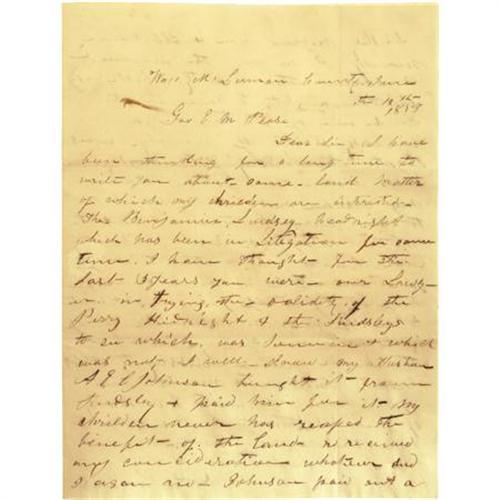 Gov E M Pease
Dear Sir I have
been thinking for a long time to
write you about some land matter
of which my children are interested
The Benjamin Lindsey headright
which has been in Litigation for some
time. I have thought for the
last years you were our Lawy-
er in trying the validity of the
Perry Hidright & the Lindsleys
to see which was & which
was not I well know my Husban
A E C Johnson bought it from
Lindsley & paid him for it My
children never has reaped the
benefit of the Lands n received
any consideration whatever and
I again no Johnson paid out a